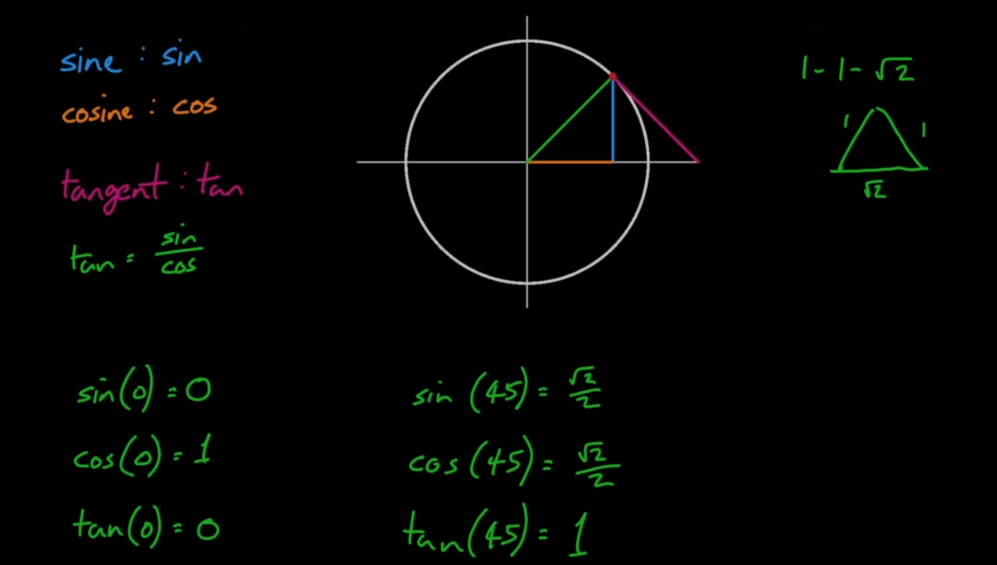 sine : sin
cosine : cos
tangent : tan
tan = sin/cos
1-1-√2
1
1
√2
sin(0) = 0
cos(0) = 1
tan(0) = 0
sin (45) = √2/2
cos (45) = √2/2
tan (45) = 1